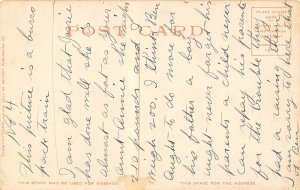 POST CARD
PLACE
STAMP
HERE
No 4
This picture is a burro
pack train
I am glad that
has done well she is
almost as fat as your
aunt Annie she weighs
210 pounds and I
weigh 200. I think Ben
aught to do more for
his father a boy
aught never forget his
parents a child never
can repay his parents
for the trouble they
had a raising them
I am sorry to hear
THIS SPACE MAY BE USED FOR MESSAGE
THIS SPACE FOR ADDRESS